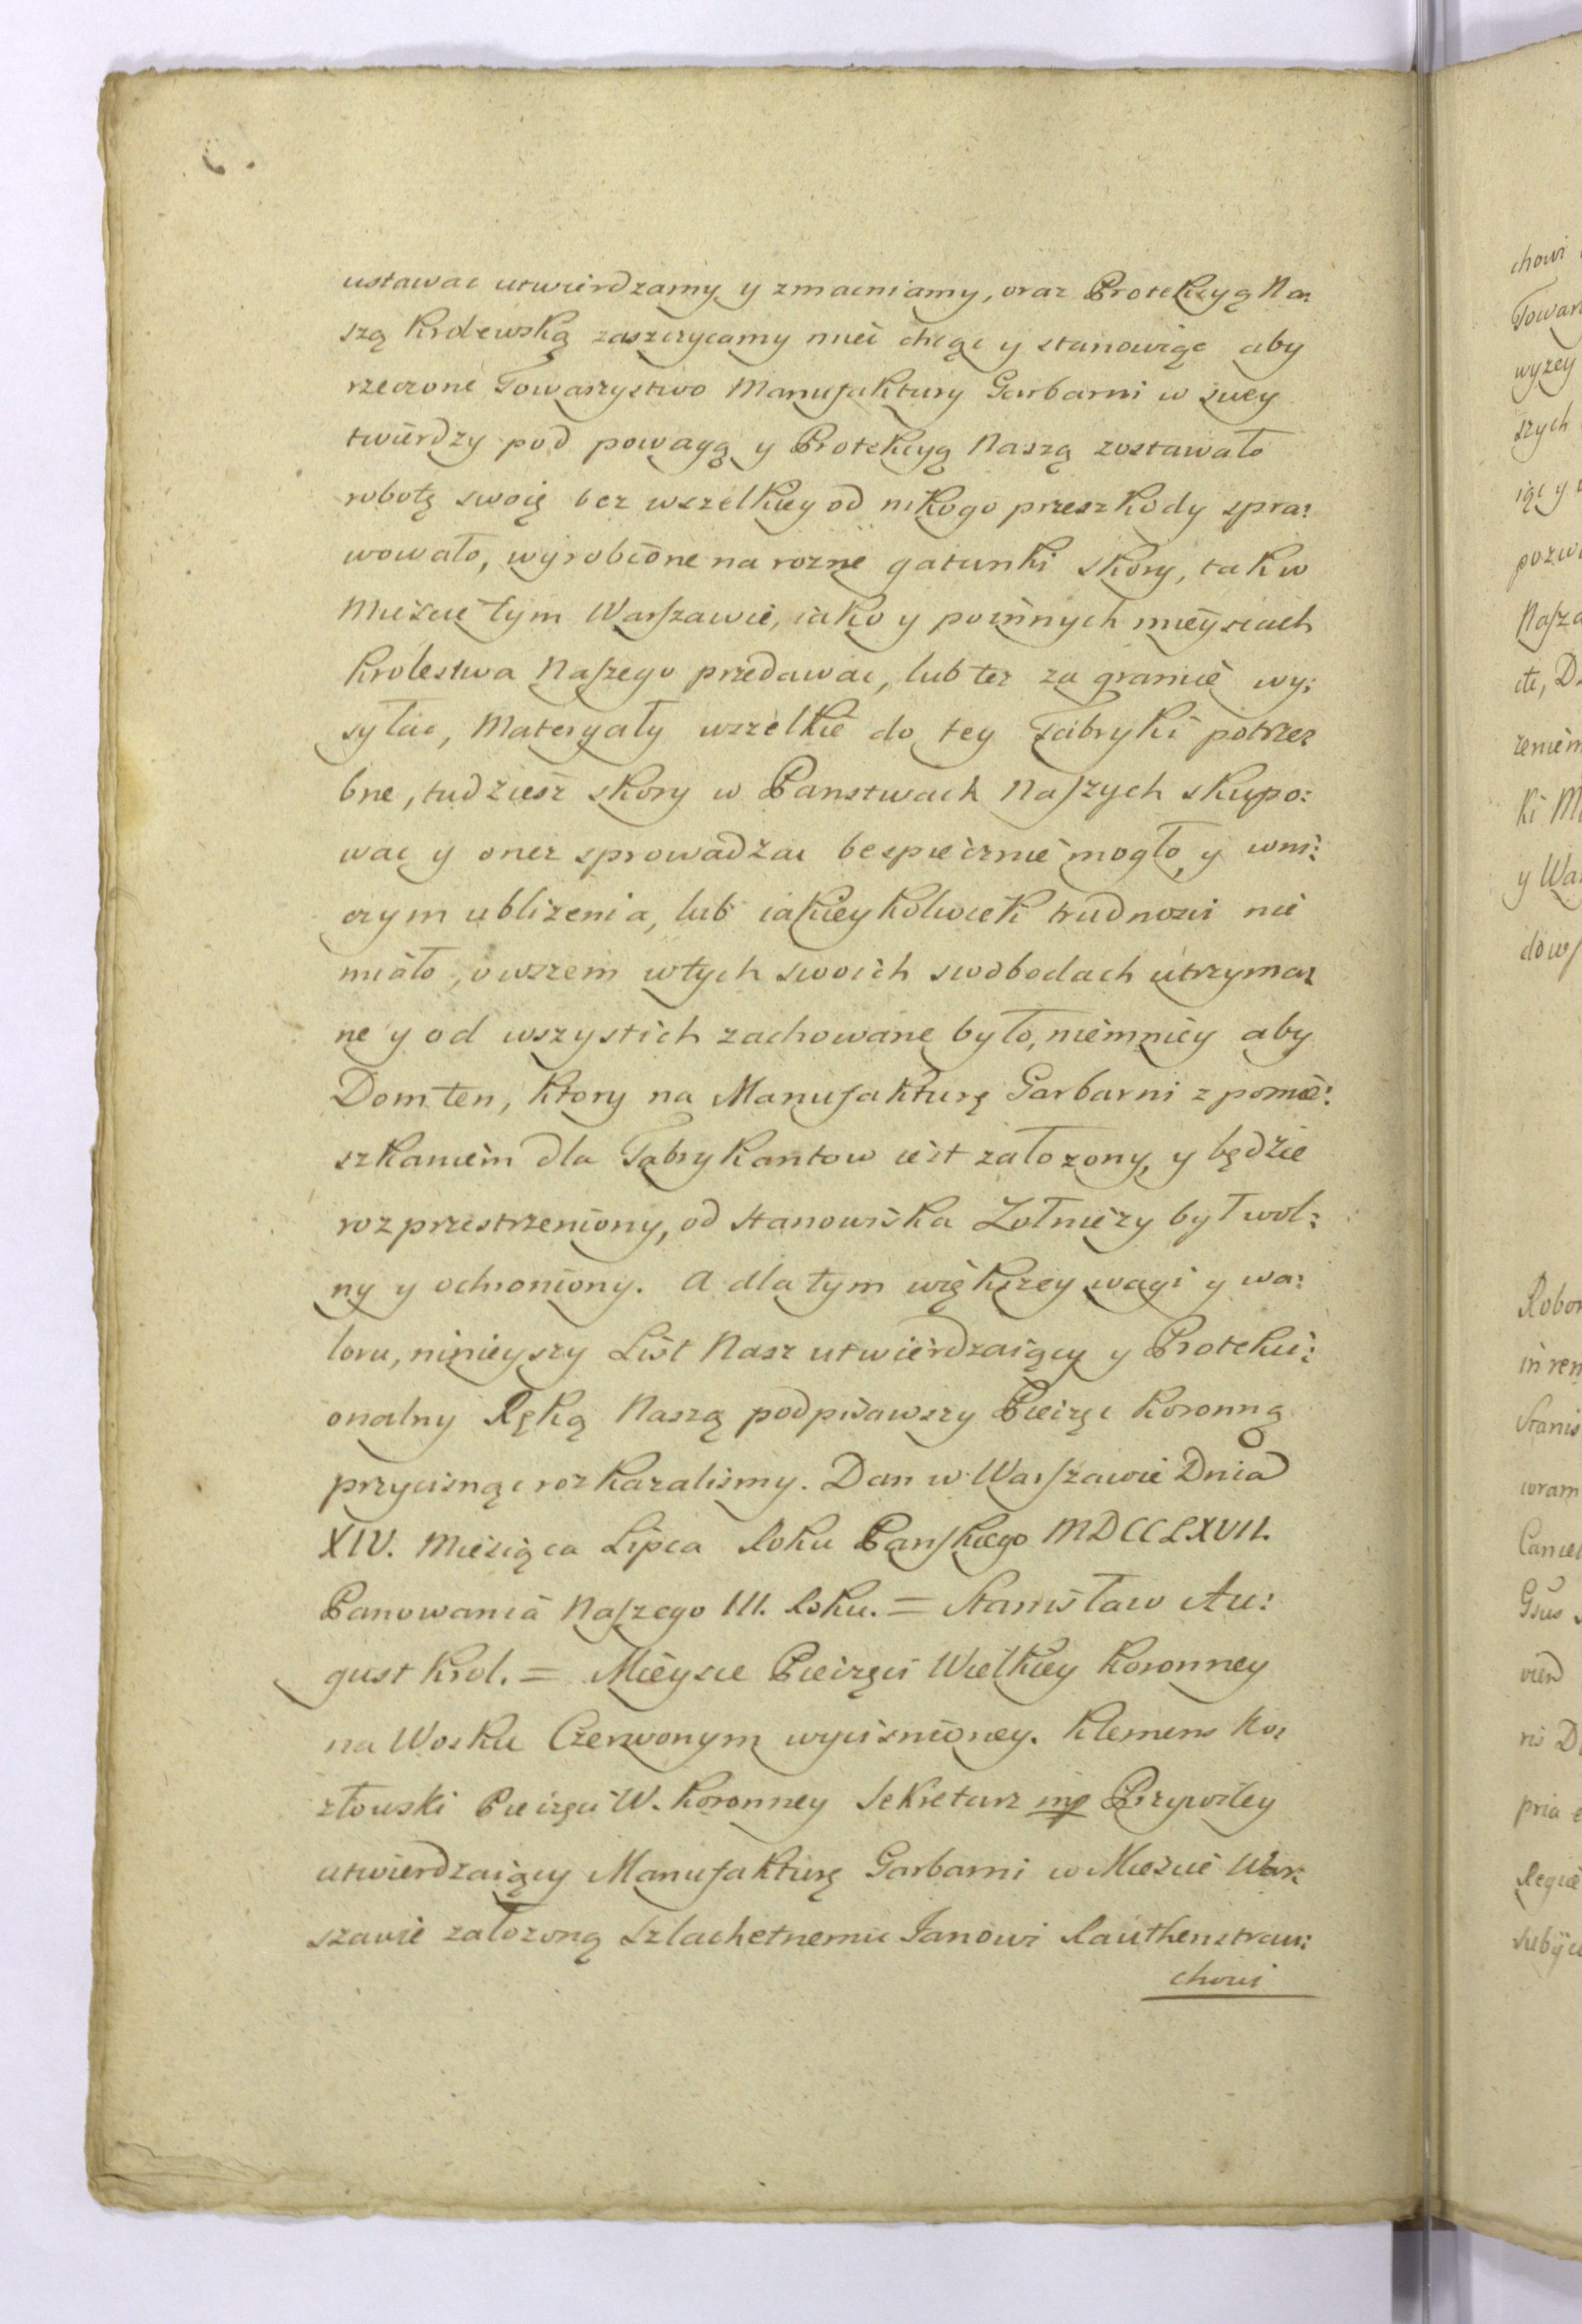 ustawac utwierdzamy y zmacniamy, oraz Protekcyą Na:
szą Krolewską zaszczycamy miec chcąc y stanowiąc aby
rzeczone Towarzystwo Manufaktury Garbarni w swey
twierdzy pod powagą y Protekcyą Naszą zostawało
robotę swoię bez wszelkiey od nikogo przeszkody spra:
wowało, wyrobione na rozne gatunki skory, tak w
Miescie tym Warszawie, iako y po innych mieyscach
Krolestwa Naszego przedawac, lub tez za granicę wy:
syłac, Materyały wszelkie do tey Fabryki potrze:
bne, tudziesz skory w Panstwach Naszych skupo:
wac y onez sprowadzac bespiecznie mogło, y w ni:
czym ublizenia, lub iakieykolwiek trudnosci nie
miało, owszem w tych swoich swobodach utrzyma:
ne y od wszystich zachowane było, niemniey aby
Dom ten, ktory na Manufakturę Garbarni z pomie:
szkaniem dla Fabrykantow iest załozony, y będzie
rozprzestrzeniony, od stanowiska Zołnierzy był wol:
ny y ochroniony. A dla tym większey wagi y wa:
loru, ninieyszy List Nasz utwierdzaiący y Protekcÿi:
onalny Ręką Naszą podpisawszy Pieczęc Koronną
przycisnąc rozkazalismy. Dan w Warszawie Dnia
XIV. Miesiąca Lipca Roku Panskiego MDCCLXVII.
Panowania Naszego III. Roku. = Stanisław Au:
gust Krol. = Mieysce Pieczęci Wielkiey Koronney
na Wosku Czerwonym wycisnioney. Klemens Ko:
złowski Pieczęci W. Koronney Sekretarz mp Przywiley
utwierdzaiący Manufakturę Garbarni w Miescie War:
szawie załozoną Szlachetnemu Janowi Rauthenstrau:
chowi